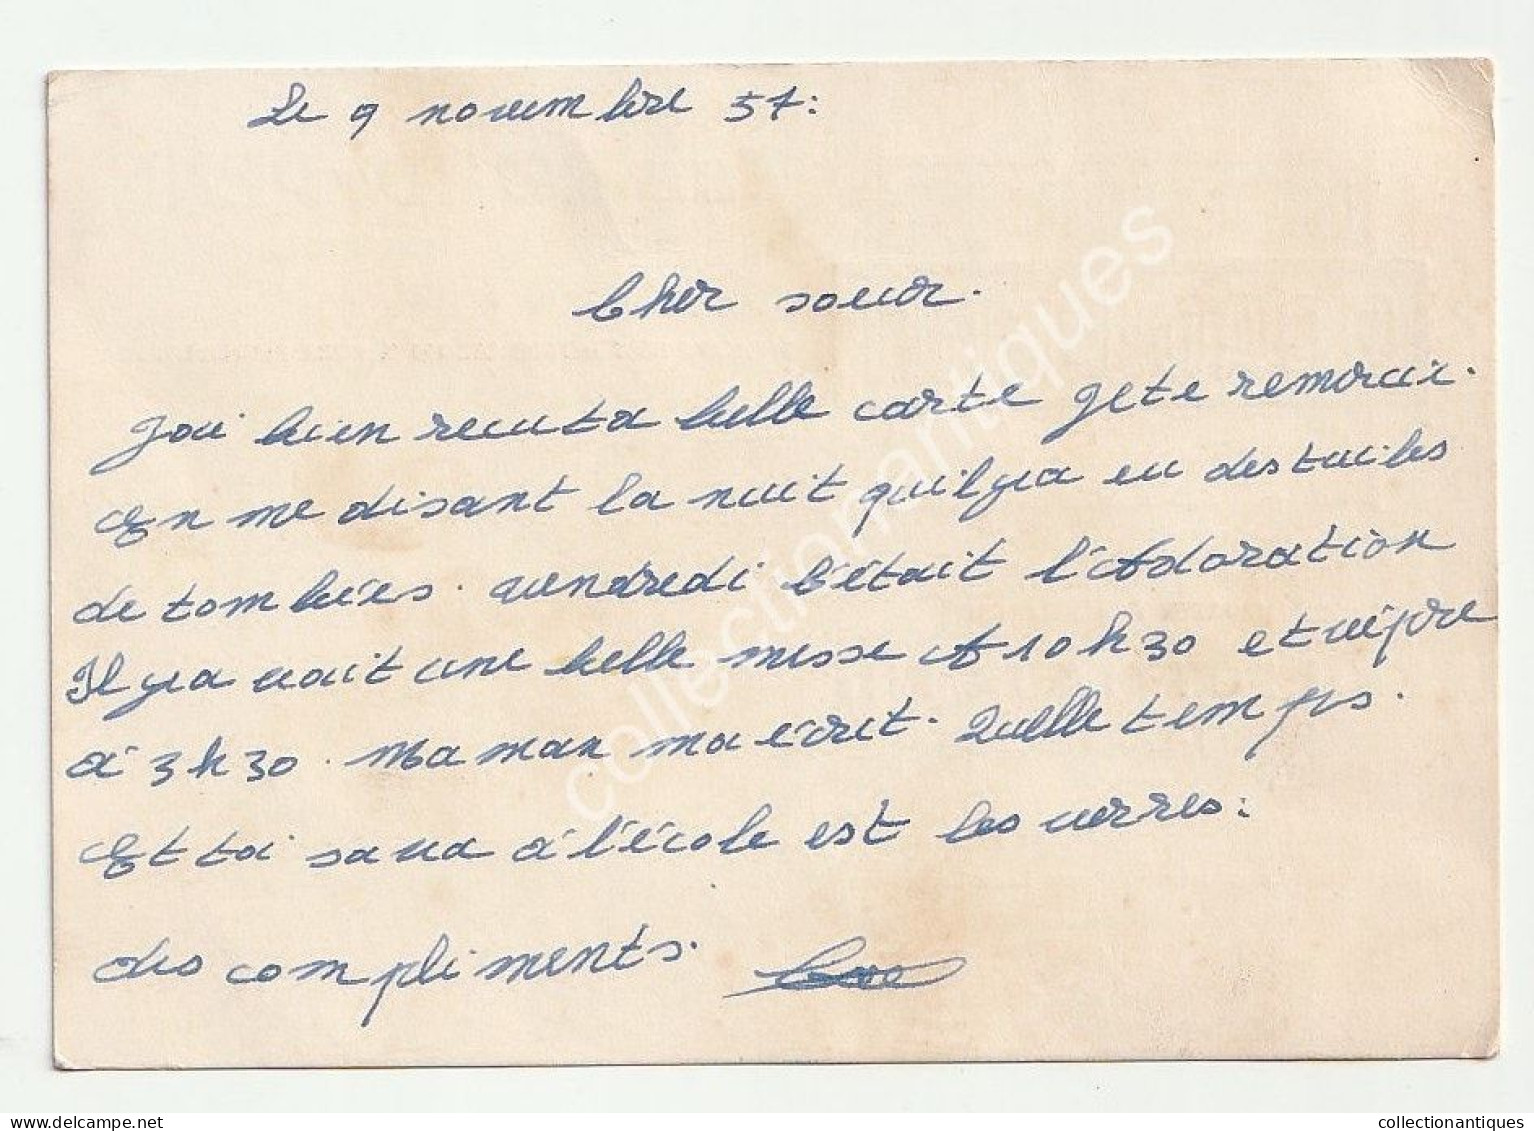 Le 9 novembre 57:
Cher soeur.
Jai bien recu ta belle carte je te remerci.
En me disant la nuit quil ya eu des tuiles
de tombées. vendredi c'était l'Adoration
Il ya vait une belle messe A 10 h 30 et vépre
à 3 h 30. Maman ma écrit. Quelle temps.
Et toi sa va à l'école est les verres:
des compliments.
collectionantiques
collectionantiques